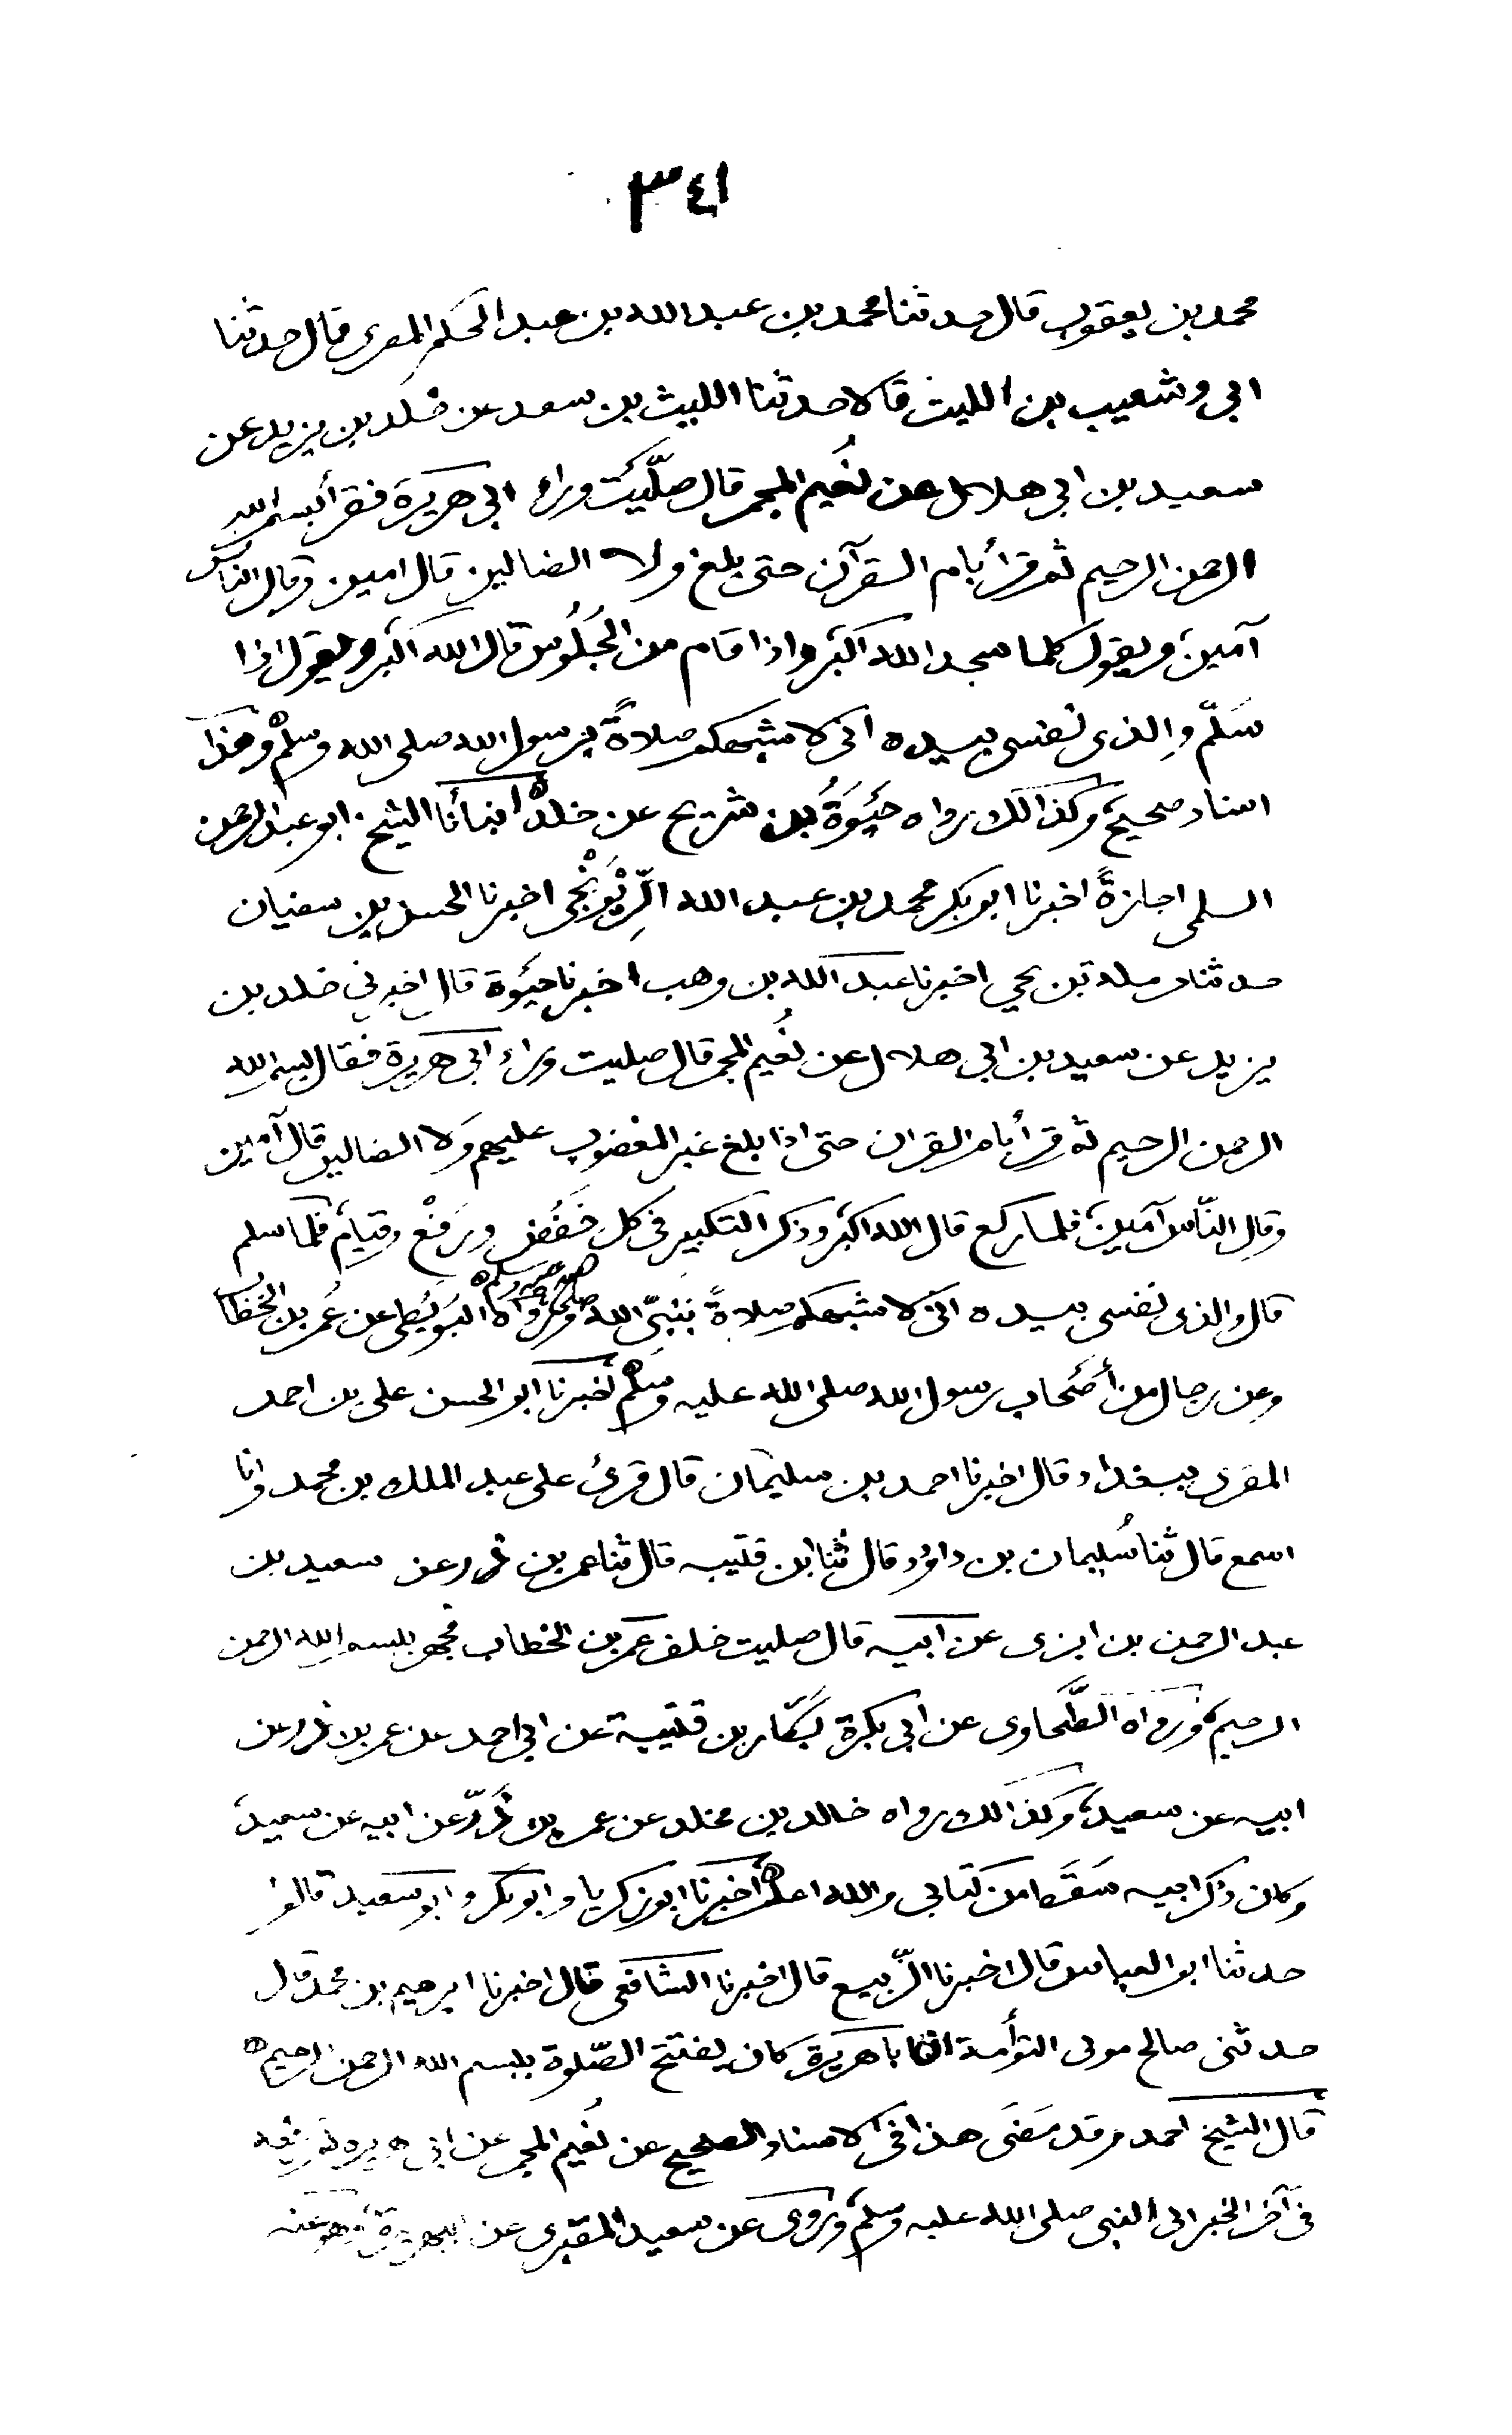 ٣٤١
محمد بن يعقوب قال حدثنا محمد بن عبد الله بن عبد الحكم المصرى قال حدثنا
ابى وشعيب بن الليث قالا حدثنا الليث بن سعد عن خلد بن يزيد عن
سعيد بن ابى هلال عن نُعيم المجمر قال صلّيت وراء ابى هريرة فقرأ بسم الله
الرحمن الرحيم ثم قرأ بام القرآن حتى بلغ ولا الضالين قال امين وقال الناس
آمين ويقول كلما سجد الله اكبر واذا قام من الجُلُوس قال الله اكبر ويقول اذا
سَلّم والذى نفسى بيده انى لاشبهكم صلاةً برسول الله صلى الله وسلم وهذا
اسناد صحيح وكذالك رواه حَيْوَةُ بن شريح عن خلد انبأنا الشيخ ابو عبد الرحمن
السلمى اجازةً اخبرنا ابو بكر محمد بن عبد الله الرِّيْوَنْجى اخبرنا الحسن بن سفيان
حدثنا حرملة بن يحي اخبرنا عبد الله بن وهب اخبرنا حَيْوة قال اخبرنى خلد بن
يزيد عن سعيد بن ابى هلال عن نُعيم المجمر قال صليت وراء ابى هريرة فقال بسم الله
الرحمن الرحيم ثم قرأ بام القران حتى اذا بلغ غير المغضوب عليهم ولا الضالين قال آمين
وقال النّاس آمين فلما ركع قال الله اكبر وذكر التكبير فى كل خَفْض ورَفْع وقيام فلما سلم
قال والذى نفسى بيده انى لاشبهكم صلاةً بنَبىّ الله صلى الله عليه وسلم ورواه البُوَيْطى عن عُمر بن الخطاب
وعن رجال من أصْحاب رسول الله صلى الله عليه وسلم اخبرنا ابو الحسن على بن احمد
المقرى ببغداد قال اخبرنا احمد بن سليمان قال قرئ على عبد الملك بن محمد وانا
اسمع قال ثنا سُليمان بن داود قال ثنا ابن قتيبه قال ثنا عمر بن ذر عن سعيد بن
عبد الرحمن بن ابزى عن ابيه قال صليت خلف عمر بن الخطاب فجهر ببسم الله الرحمن
الرحيم ورواه الطَّحاوى عن ابى بكرة بَكَّار بن قتيبة عن ابى احمد عن عمر بن ذر عن
ابيه عن سعيد وكذالك رواه خالد بن مخلد عن عمر بن ذَرّ عن ابيه عن سعيد
وكان ذكر ابيه سَقَط من كتابى والله اعلم اخبرنا ابو زكريا وابو بكر وابو سعيد قالوا
حدثنا ابو العباس قال اخبرنا الرّبيع قال اخبرنا الشافعى قال اخبرنا ابرهيم بن محمد قال
حدثنى صالح مولى التوأمة ان ابا هريرة كان يفتتح الصّلوة ببسم الله الرحمن الرحيم
قال الشيخ احمد وقد مَضَى هذا فى الاسناد الصحيح عن نُعيم المجمر عن ابى هريرة ثم رفعه
فى آخر الخبر الى النبى صلى الله عليه وسلم وروى عن سعيد المقبرى عن